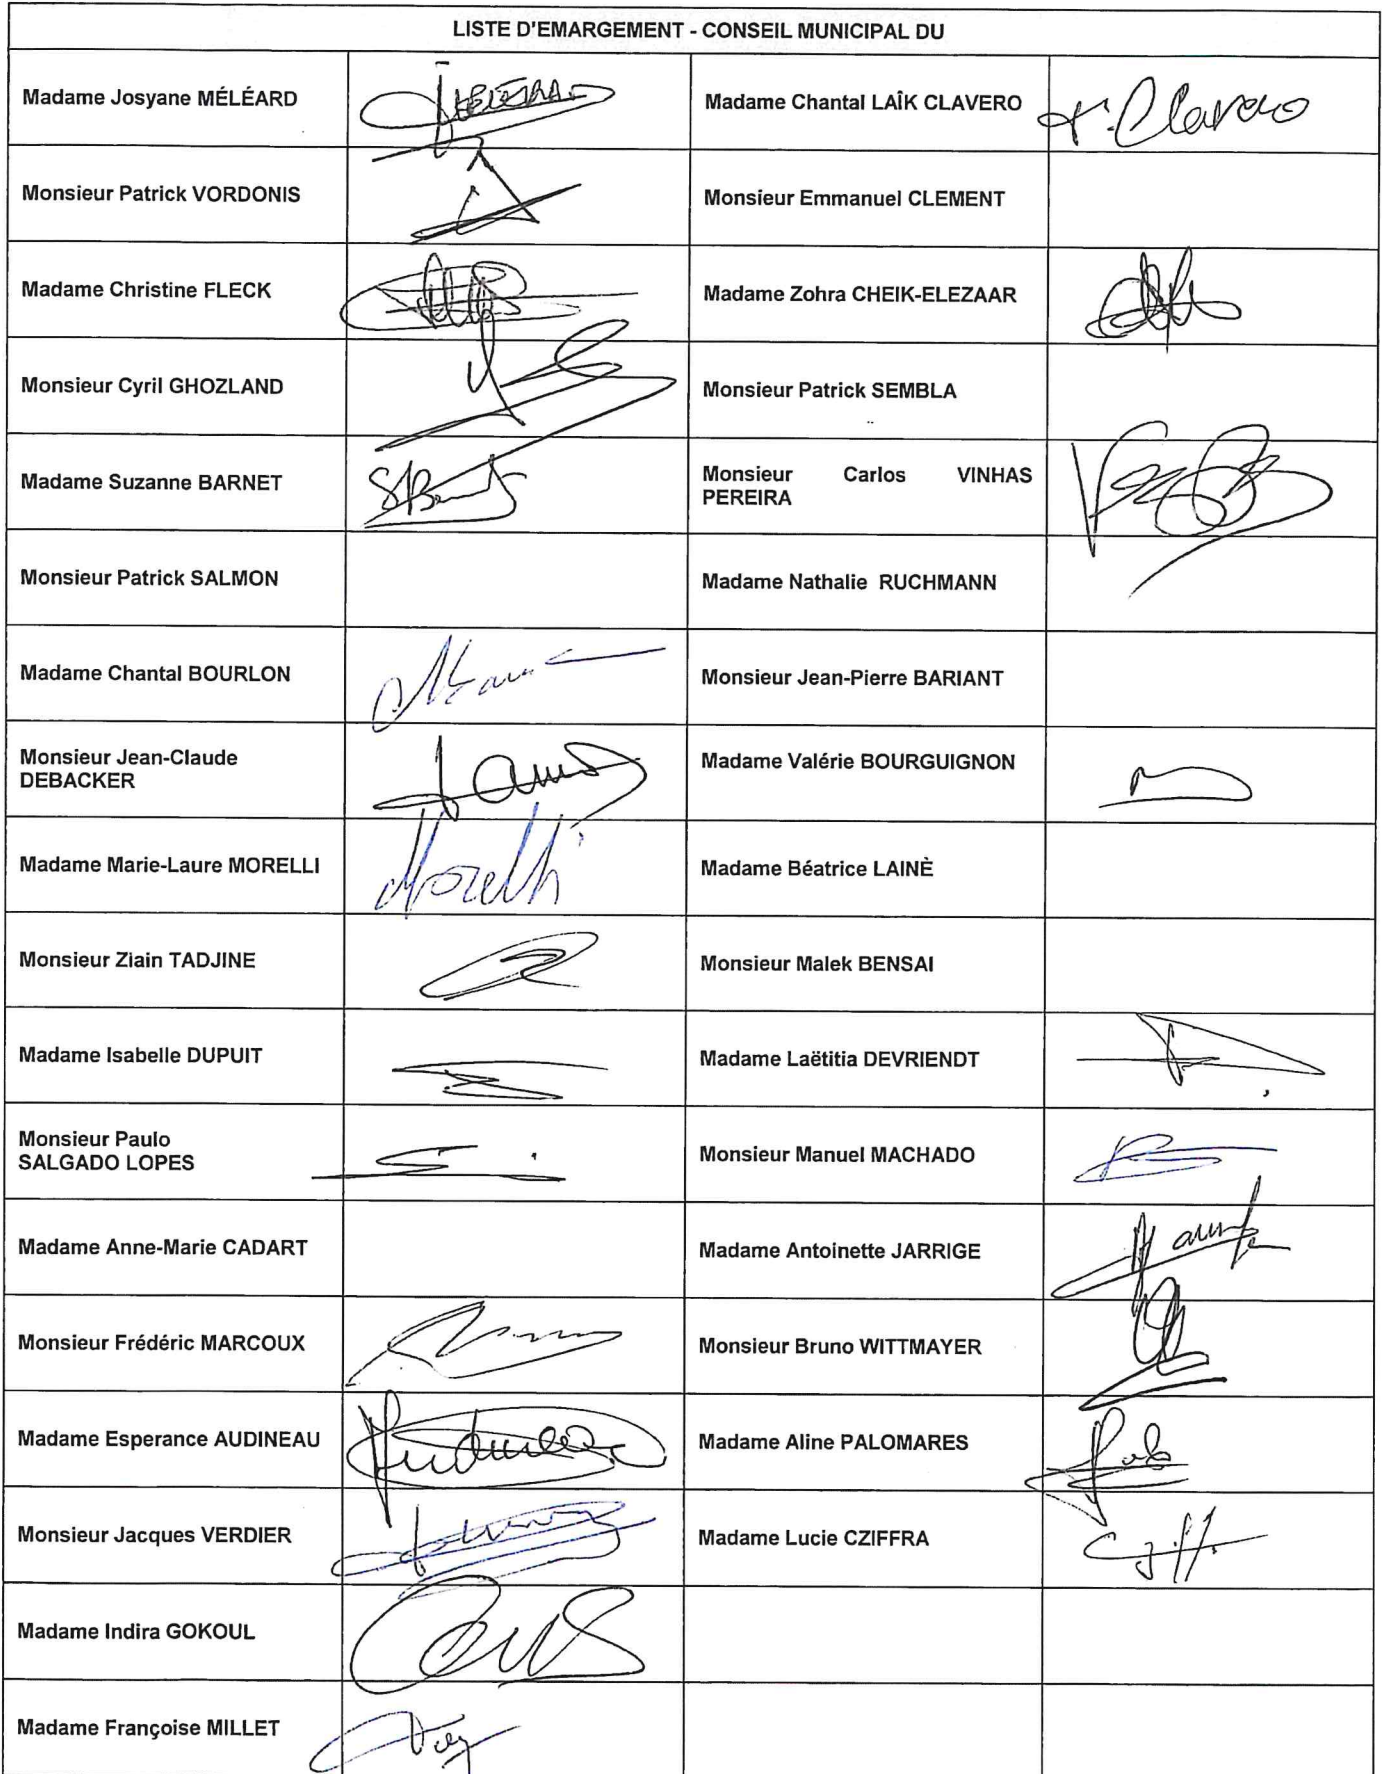 LISTE D'EMARGEMENT - CONSEIL MUNICIPAL DU
Madame Josyane MÉLÉARD
Madame Chantal LAÎK CLAVERO
Clavero
Monsieur Patrick VORDONIS
Monsieur Emmanuel CLEMENT
Madame Christine FLECK
Madame Zohra CHEIK-ELEZAAR
Monsieur Cyril GHOZLAND
Monsieur Patrick SEMBLA
Madame Suzanne BARNET
Monsieur Carlos VINHAS
PEREIRA
Monsieur Patrick SALMON
Madame Nathalie RUCHMANN
Madame Chantal BOURLON
Monsieur Jean-Pierre BARIANT
Monsieur Jean-Claude
DEBACKER
Madame Valérie BOURGUIGNON
Madame Marie-Laure MORELLI
Morelli
Madame Béatrice LAINÈ
Monsieur Ziain TADJINE
Monsieur Malek BENSAI
Madame Isabelle DUPUIT
Madame Laëtitia DEVRIENDT
Monsieur Paulo
SALGADO LOPES
Monsieur Manuel MACHADO
Madame Anne-Marie CADART
Madame Antoinette JARRIGE
Monsieur Frédéric MARCOUX
Monsieur Bruno WITTMAYER
Madame Esperance AUDINEAU
Madame Aline PALOMARES
Monsieur Jacques VERDIER
Madame Lucie CZIFFRA
Madame Indira GOKOUL
Madame Françoise MILLET